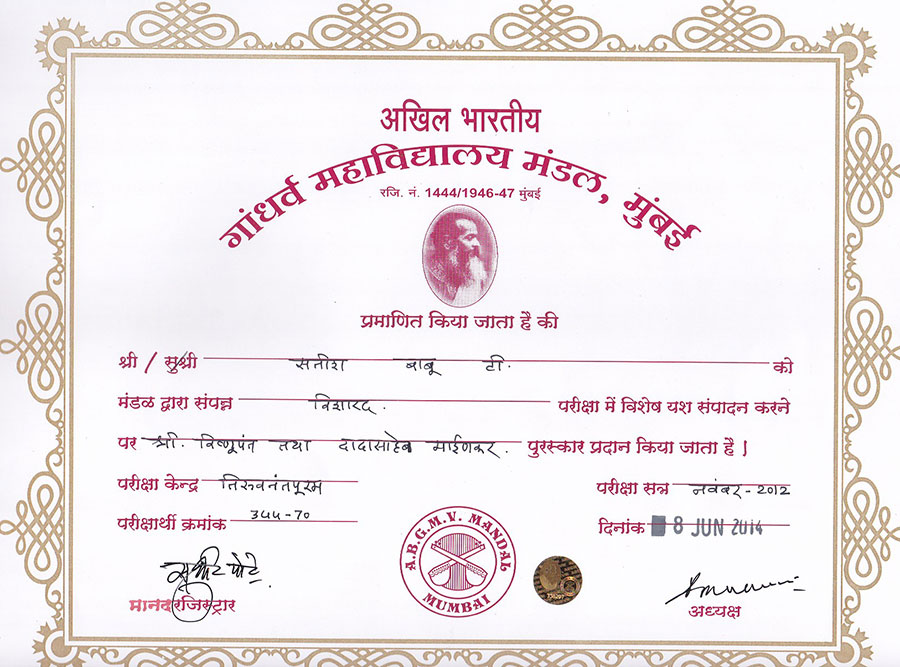 अखिल भारतीय
गांधर्व महाविद्यालय मंडल, मुंबई
रजि. नं. 1444/1946-47 मुंबई
प्रमाणित किया जाता है की
श्री / सुश्री सतीश बाबू टी. को
मंडळ द्वारा संपन्न विशारद. परीक्षा में विशेष यश संपादन करने
पर श्री. विष्णूपंत तथा दादासाहेब माईणकर. पुरस्कार प्रदान किया जाता है।
परीक्षा केन्द्र तिरुवनंतपूरम परीक्षा सत्र नवंबर-2012
परीक्षार्थी क्रमांक ३५५-70 दिनांक 8 JUN 2014
A.B.G.M.V. MANDAL
MUMBAI
मानद रजिस्ट्रार अध्यक्ष